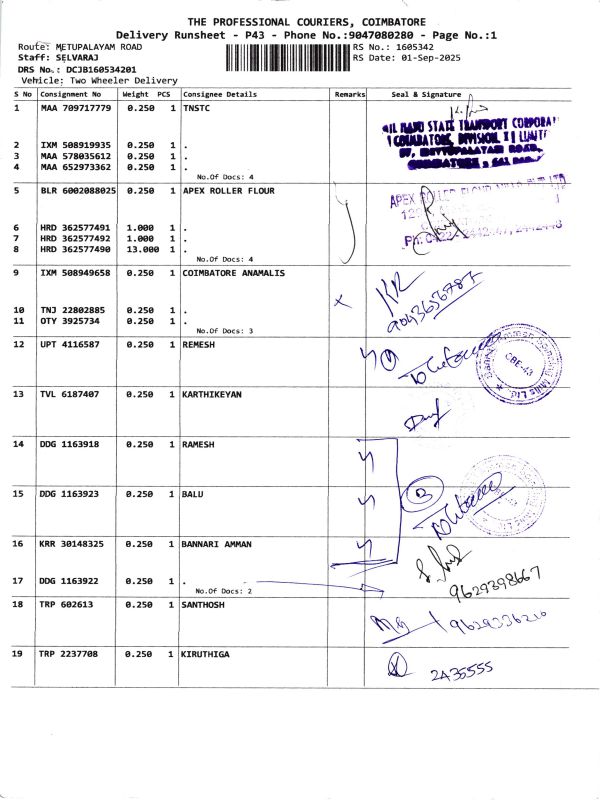 THE PROFESSIONAL COURIERS, COIMBATORE
Delivery Runsheet - P43 - Phone No.:9047080280 - Page No.:1
Route: METUPALAYAM ROAD RS No.: 1605342
Staff: SELVARAJ RS Date: 01-Sep-2025
DRS No.: DCJB160534201
Vehicle: Two Wheeler Delivery
S No Consignment No Weight PCS Consignee Details Remarks Seal & Signature
1 MAA 709717779 0.250 1 TNSTC
STATE TRANSPORT CORPORAT
COIMBATORE, DIVISION II LIMIT
2 IXM 508919935 0.250 1 .
3 MAA 578035612 0.250 1 .
37, METTUPALAYAM ROAD,
4 MAA 652973362 0.250 1 .
COIMBATORE
No.Of Docs: 4
5 BLR 6002088025 0.250 1 APEX ROLLER FLOUR
APEX ROLLER FLOUR MILLS PVT LTD
6 HRD 362577491 1.000 1 .
7 HRD 362577492 1.000 1 .
8 HRD 362577490 13.000 1 .
No.Of Docs: 4
9 IXM 508949658 0.250 1 COIMBATORE ANAMALIS
KR
9043656787
10 TNJ 22802885 0.250 1 .
11 OTY 3925734 0.250 1 .
No.Of Docs: 3
12 UPT 4116587 0.250 1 REMESH
CBE-43
13 TVL 6187407 0.250 1 KARTHIKEYAN
14 DDG 1163918 0.250 1 RAMESH
15 DDG 1163923 0.250 1 BALU
B
16 KRR 30148325 0.250 1 BANNARI AMMAN
17 DDG 1163922 0.250 1 .
No.Of Docs: 2
9629398667
18 TRP 602613 0.250 1 SANTHOSH
9629336210
19 TRP 2237708 0.250 1 KIRUTHIGA
2435555